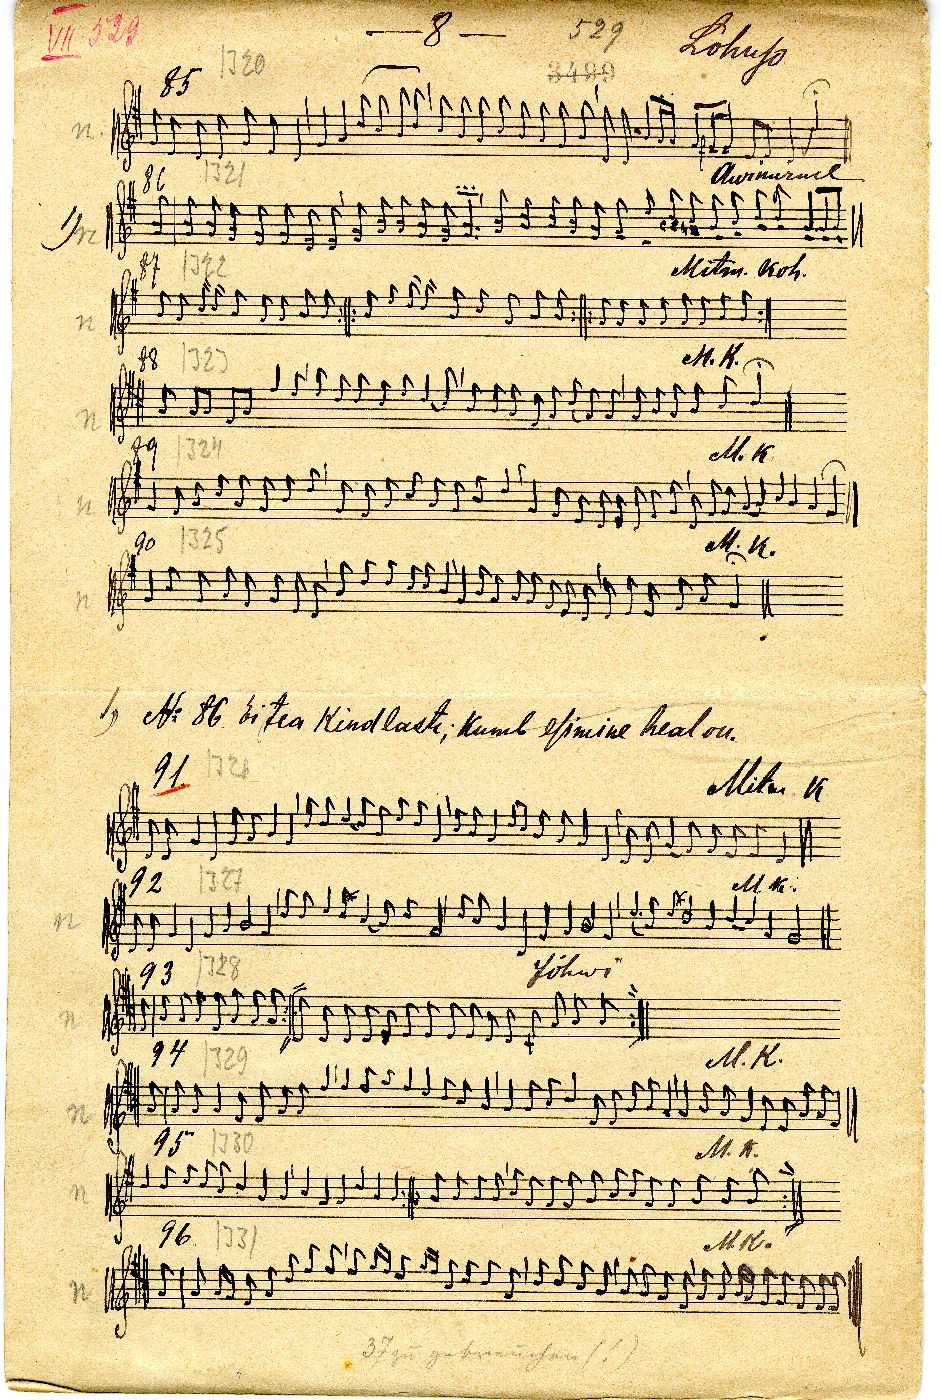 VII 529 — 8 — 529
3499
85 1320
n.
86 1321
1) n
87 1322 Mitm. Koh.
n
88 1323 M. K.
n
89 1324 M. K
n
90 1325 M. K.
n
1) № 86 Ei tea Kindlasti, kumb esimine heal on.
91. 1326 Mitm K
92 1327 M. K.
n
93 1328 Jõhwi
n
94 1329 M. K.
n
95 1330 M. K.
n
96 1331 M. K.
n
37 zu gebrauchen (!)